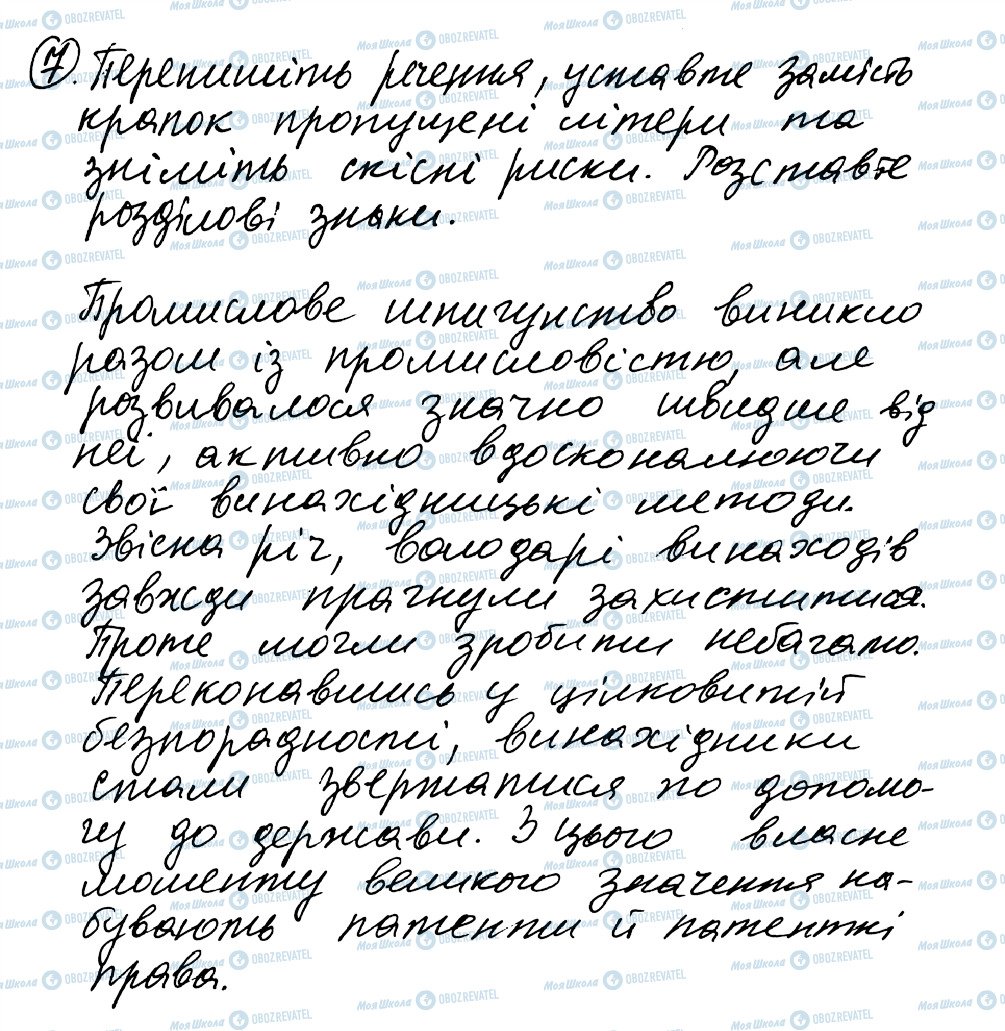 7. Перепишіть речення, уставте замість
крапок пропущені літери та
зніміть скісні риски. Розставте
розділові знаки.
Промислове шпигунство виникло
разом із промисловістю, але
розвивалося значно швидше від
неї, активно вдосконалюючи
свої винахідницькі методи.
Звісна річ, володарі винаходів
завжди прагнули захиститися.
Проте могли зробити небагато.
Переконавшись у цілковитій
безпорадності, винахідники
стали звертатися по допомо-
гу до держави. З цього власне
моменту великого значення на-
бувають патенти й патентні
права.